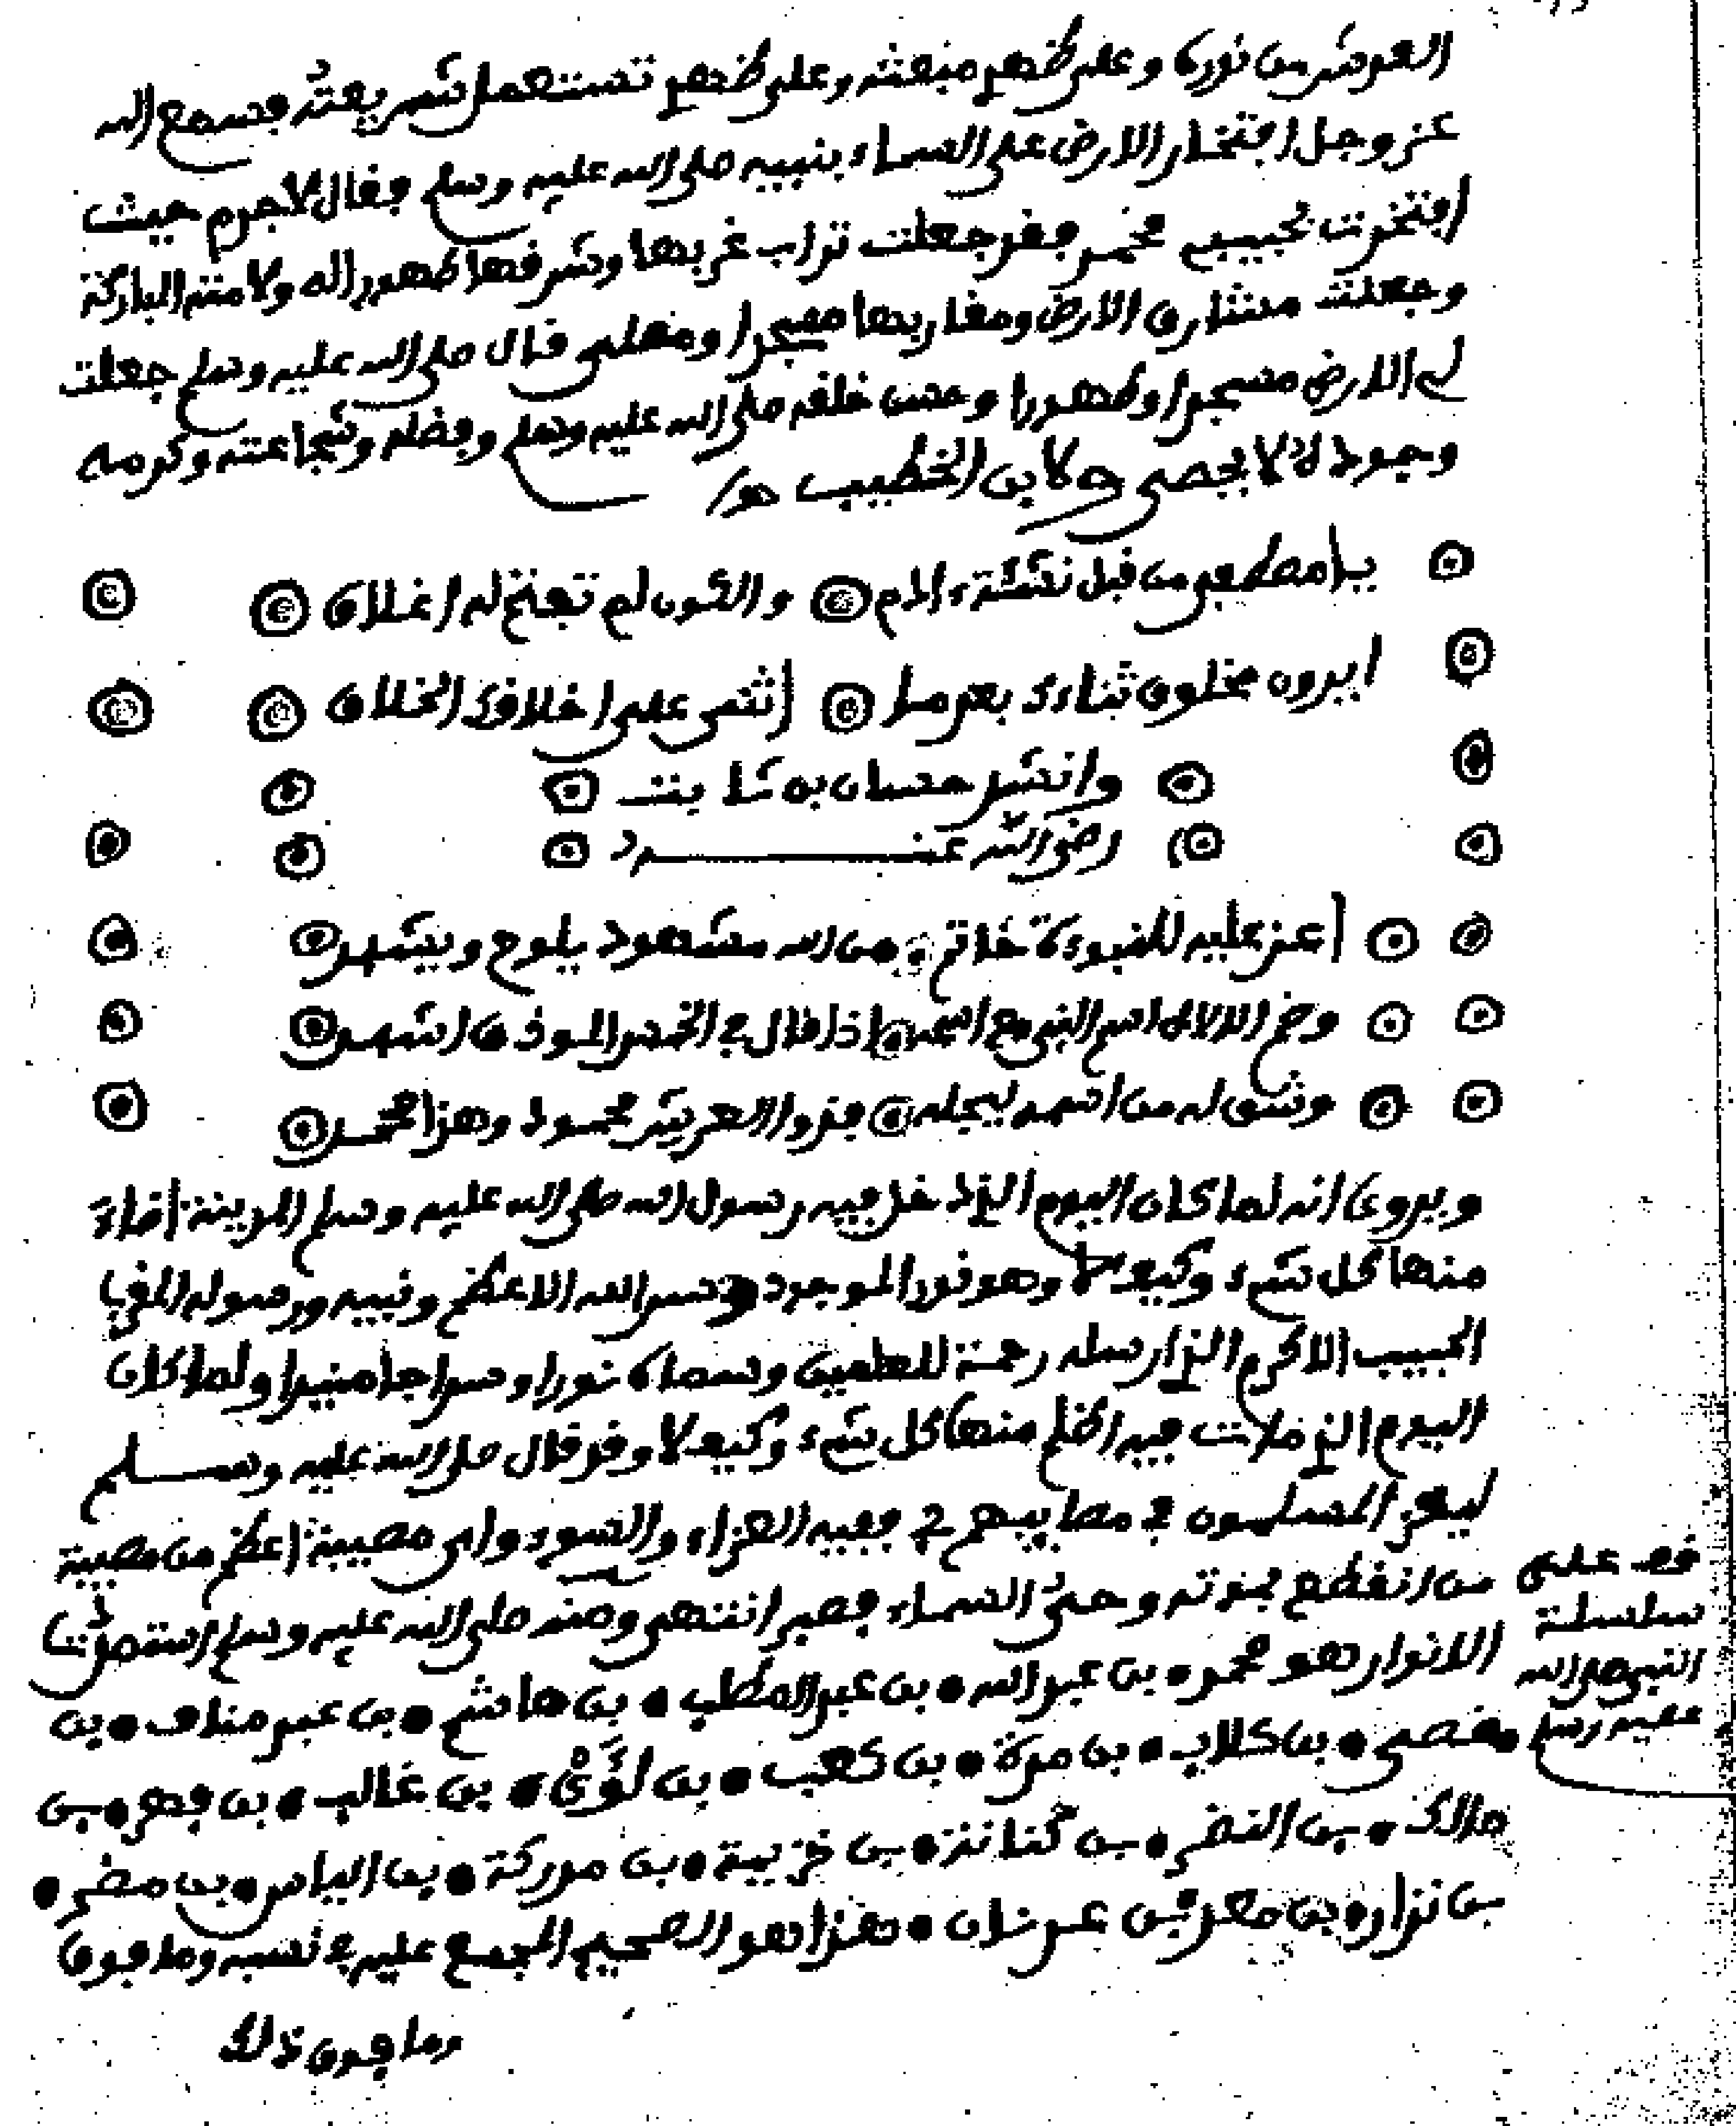 العرش من نوره وعلى ظهري مبعثه وعلى ظهري تستعمل شريعته فسمع الله
عز وجل افتخار الارض على السماء بنبيه صلى الله عليه وسلم فقال لاجرم حيث
افتخرت بحبيبي محمد فقد جعلت تراب غربها وشرقها طهورا له ولامته المباركة
وجعلت مشارق الارض ومغاربها مسجدا ومصلى قال صلى الله عليه وسلم جعلت
لي الارض مسجدا وطهورا وحسن خلقه صلى الله عليه وسلم وفضله وشجاعته وكرمه
وجوده لا يحصى ولابن الخطيب
يا مصطفى من قبل نشئة ءادم والكون لم تفتح له اغلاق
ايروم مخلوق ثناءك بعدما اثنى على اخلاقك الخلاق
وانشد حسان بن ثابت
رضي الله عنه
اغر عليه للنبوءة خاتم من الله مشهود يلوح ويشهد
وضم الالاه اسم النبي مع اسمه اذا قال في الخمس الموذن اشهد
وشق له من اسمه ليجله فذوا العرش محمود وهذا محمد
ويروى انه لما كان اليوم الذي دخل فيه رسول الله صلى الله عليه وسلم المدينة اضاء
منها كل شيء وكيف لا وهو نور الموجود وسر الله الاعظم ونبيه ورسوله
الحبيب الاكرم الذي ارسله رحمة للعلمين وسماه نورا وسراجا منيرا ولما كان
اليوم الذي مات فيه اظلم منها كل شيء وكيف لا وقد قال صلى الله عليه وسلم
ليعز المسلمون في مصايبهم في ففيه العزاء والسوء واي مصيبة اعظم من مصيبة
من انقطع بموته وحي السماء فصبر انتهى ومنه صلى الله عليه وسلم استمدت
الانوار هو محمد بن عبد الله بن عبد المطلب بن هاشم بن عبد مناف بن
قصي بن كلاب بن مرة بن كعب بن لؤي بن غالب بن فهر بن
مالك بن النضر بن كنانة بن خزيمة بن مدركة بن الياس بن مضر
بن نزار بن معد بن عدنان هذا هو الصحيح المجمع عليه في نسبه وما فوق
وما فوق ذلك
قف على
سلسلة
النبي صلى الله
عليه وسلم